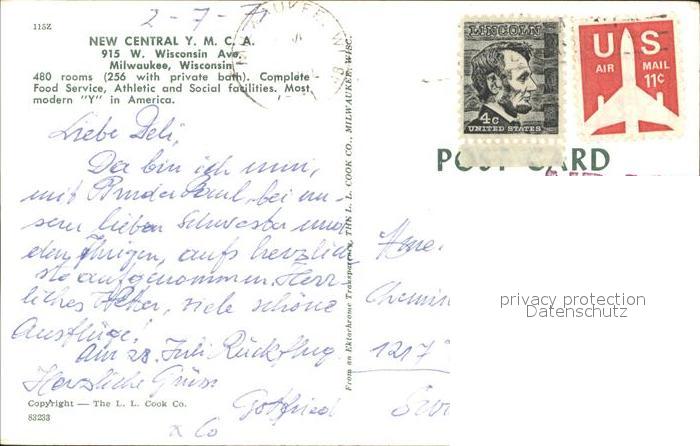 115Z
2-7-71
NEW CENTRAL Y. M. C. A.
915 W. Wisconsin Ave.
Milwaukee, Wisconsin
480 rooms (256 with private bath). Complete
Food Service, Athletic and Social facilities. Most
modern "Y" in America.
Liebe Deli,
Da bin ich nun,
mit Bruder Paul, bei un-
sern lieben Schwester und
den Ihrigen, aufs herzlich
ste aufgenommen. Herr-
liches Wetter, viele schöne
Ausflüge!
Am 28. Juli Rückflug.
Herzliche Grüsse
Gottfried
x Co
Copyright — The L. L. Cook Co.
83233
From an Ektachrome Transparency, THE L. L. COOK CO., MILWAUKEE, WISC.
LINCOLN
4c
UNITED STATES
US
AIR MAIL
11c
POST CARD
Chemin
1217
privacy protection
Datenschutz